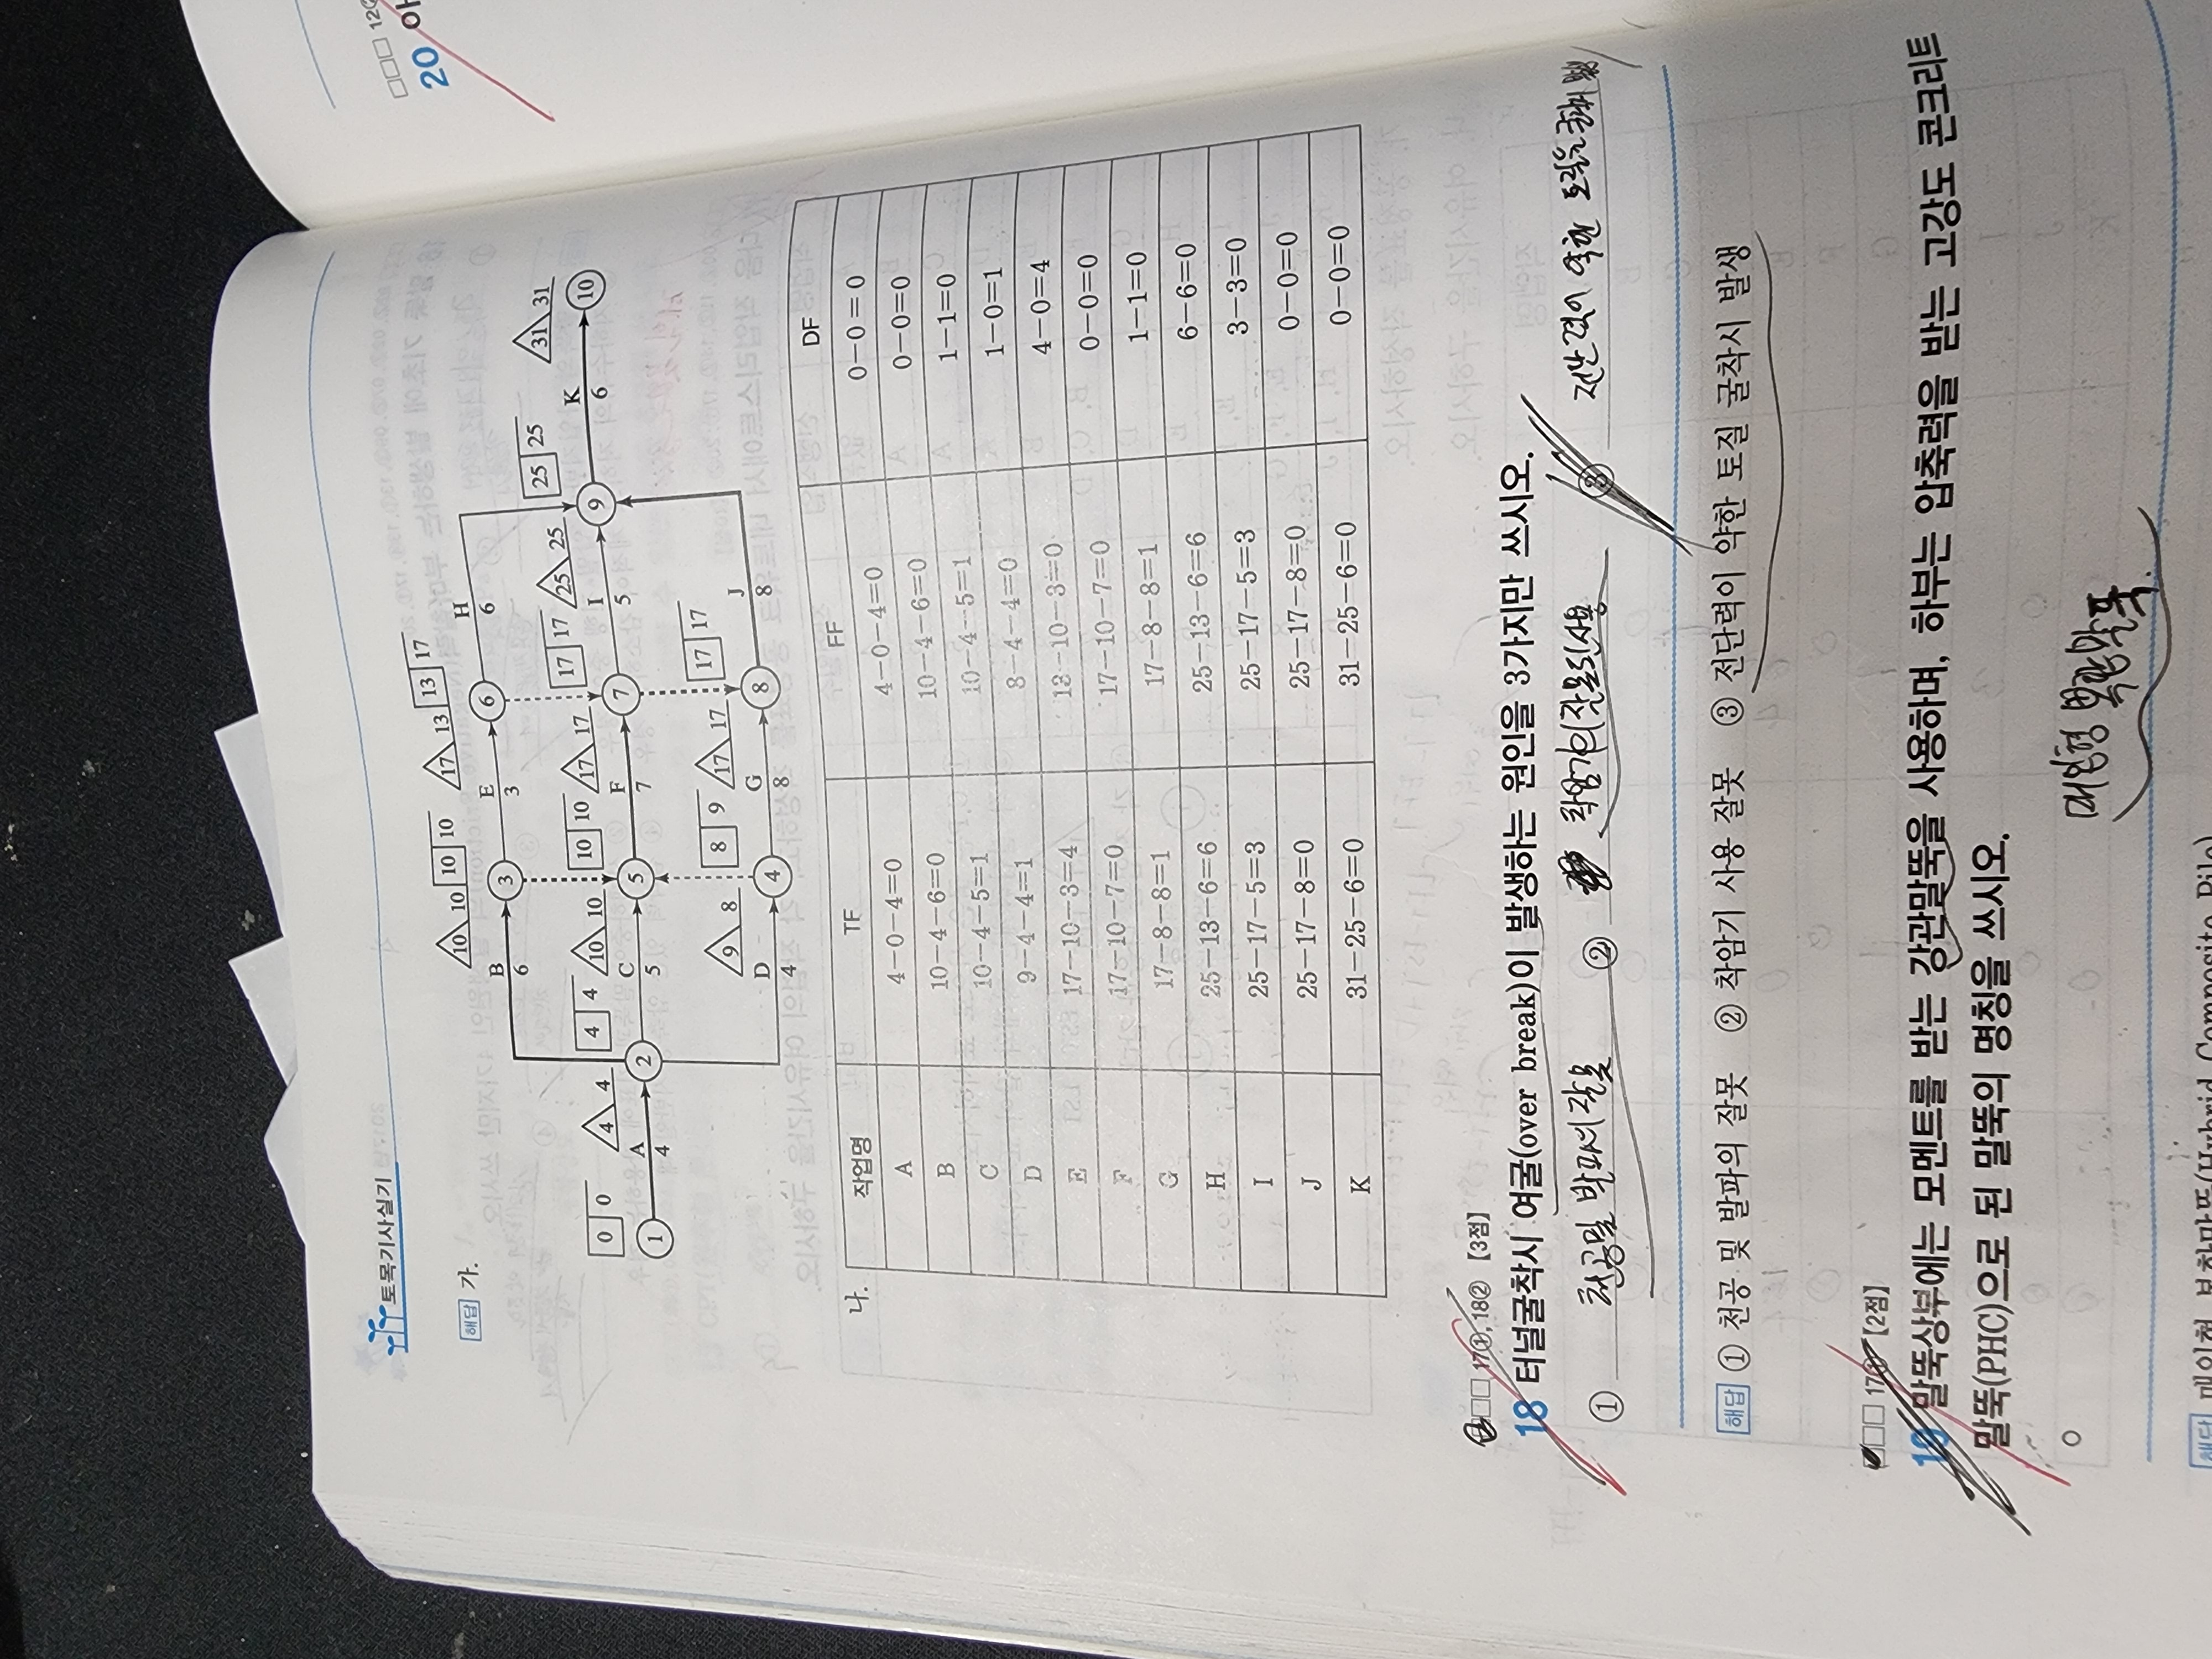 토목기사실기
해답 가.
0 0
4 4
4 4
10 10
10 10
17 13
13 17
10 10
10 10
17 17
17 17
25 25
25 25
31 31
9 8
8 9
17 17
17 17
1 A 4 2
B 6 3 E 3 6 H 6
C 5 5 F 7 7 I 5 9 K 6 10
D 4 4 G 8 8 J 8
나.
작업명 TF FF DF
A 4-0-4=0 4-0-4=0 0-0=0
B 10-4-6=0 10-4-6=0 0-0=0
C 10-4-5=1 10-4-5=1 1-1=0
D 9-4-4=1 8-4-4=0 1-0=1
E 17-10-3=4 13-10-3=0 4-0=4
F 17-10-7=0 17-10-7=0 0-0=0
G 17-8-8=1 17-8-8=1 1-1=0
H 25-13-6=6 25-13-6=6 6-6=0
I 25-17-5=3 25-17-5=3 3-3=0
J 25-17-8=0 25-17-8=0 0-0=0
K 31-25-6=0 31-25-6=0 0-0=0
18② [3점]
18 터널굴착시 여굴(over break)이 발생하는 원인을 3가지만 쓰시오.
① 천공및 발파의 잘못 ② 착암기의 잘못된 사용 ③ 전단력이 약한 토질을 굴착
해답 ① 천공 및 발파의 잘못 ② 착암기 사용 잘못 ③ 전단력이 약한 토질 굴착시 발생
[2점]
19 말뚝상부에는 모멘트를 받는 강관말뚝을 사용하며, 하부는 압축력을 받는 고강도 콘크리트
말뚝(PHC)으로 된 말뚝의 명칭을 쓰시오.
○ 매입형 복합말뚝.
20